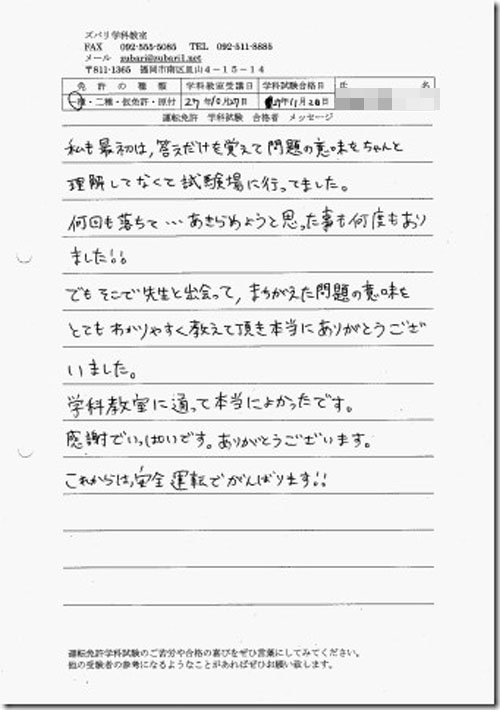 ズバリ学科教室
FAX 092-555-5085 TEL 092-511-8885
メール zubari@zubari1.net
〒811-1365 福岡市南区皿山4-15-14
免許の種類 学科教室受講日 学科試験合格日 氏 名
一種・二種・仮免許・原付 27年10月27日 27年11月20日
運転免許 学科試験 合格者 メッセージ
私も最初は、答えだけを覚えて問題の意味をちゃんと
理解してなくて試験場に行ってました。
何回も落ちて…あきらめようと思った事も何度もあり
ました!!
でもそこで先生と出会って、まちがえた問題の意味を
とてもわかりやすく教えて頂き本当にありがとうござ
いました。
学科教室に通って本当によかったです。
感謝でいっぱいです。ありがとうございます。
これからは、安全運転でがんばります!!
運転免許学科試験のご苦労や合格の喜びをぜひ言葉にしてみてください。
他の受験者の参考になるようなことがあればぜひお願い致します。